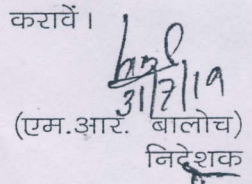 करावें।
31/7/19
(एम.आर. बालोच)
निदेशक